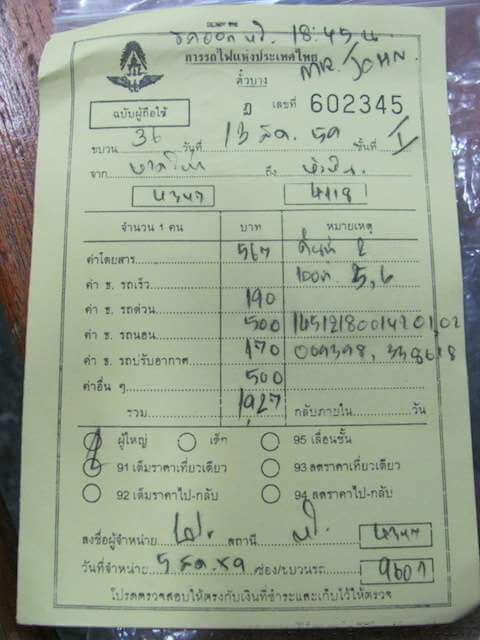 18:45 น
การรถไฟแห่งประเทศไทย
ตั๋วบาง
MR. JOHN
ฉบับผู้ถือใช้
ฎ เลขที่ 602345
ขบวน 36 วันที่ 13 ชั้นที่ I
จาก หาดใหญ่ ถึง
4347 4118
จำนวน 1 คน บาท หมายเหตุ
ค่าโดยสาร 567 2
5, 6
ค่า ธ. รถเร็ว
ค่า ธ. รถด่วน 190
ค่า ธ. รถนอน 500
ค่า ธ. รถปรับอากาศ 170
ค่าอื่น ๆ 500
รวม 1927 กลับภายใน วัน
ผู้ใหญ่ เด็ก 95 เลื่อนชั้น
91 เต็มราคาเที่ยวเดียว 93 ลดราคาเที่ยวเดียว
92 เต็มราคาไป-กลับ 94 ลดราคาไป-กลับ
ลงชื่อผู้จำหน่าย สถานี 4347
วันที่จำหน่าย 5 ช่อง/ขบวนรถ 9607
โปรดตรวจสอบให้ตรงกับเงินที่ชำระและเก็บไว้ให้ตรวจ